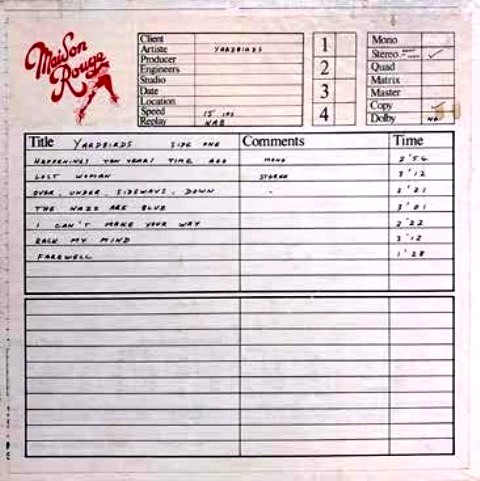 Maison
Rouge
Client
Artiste YARDBIRDS
Producer
Engineers
Studio
Date
Location
Speed 15 ips
Replay NAB
1
2
3
4
Mono
Stereo ✓
Quad
Matrix
Master
Copy ✓
Dolby NO
Title YARDBIRDS SIDE ONE Comments Time
HAPPENINGS TEN YEARS TIME AGO MONO 2'54
LOST WOMAN STEREO 3'12
OVER, UNDER, SIDEWAYS, DOWN " 2'21
THE NAZZ ARE BLUE 3'01
I CAN'T MAKE YOUR WAY 2'22
RACK MY MIND 3'12
FAREWELL 1'28